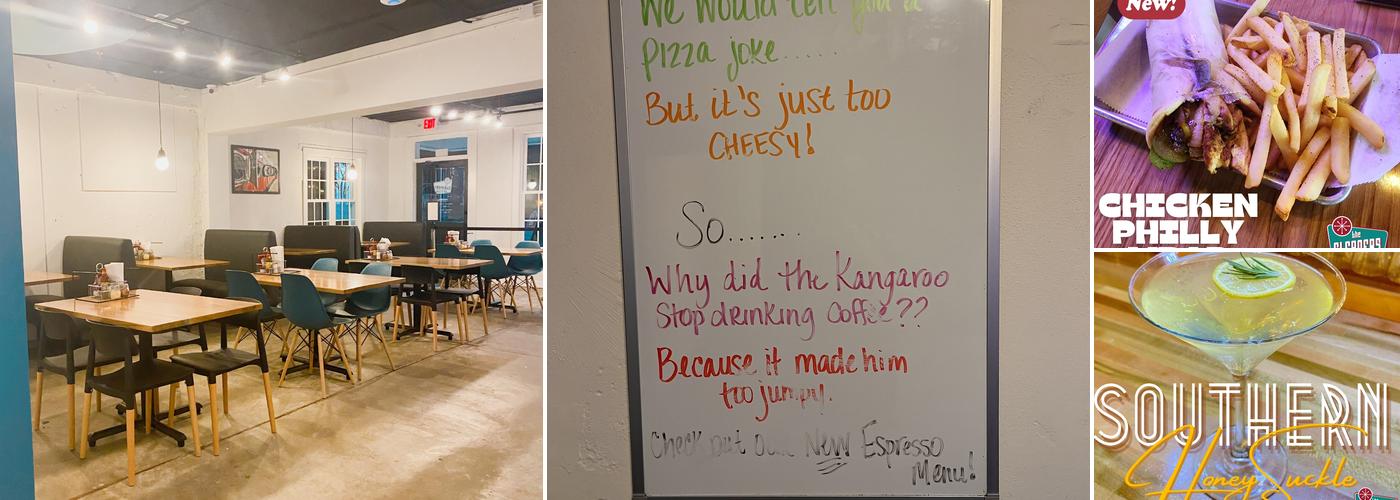 EXIT
We would tell you a
Pizza joke.....
But it's just too
CHEESY!
So.......
Why did the Kangaroo
Stop drinking Coffee??
Because it made him
too jumpy.
Check out our New Espresso
Menu!
New!
CHICKEN
PHILLY
the
SOUTHERN
HoneySuckle